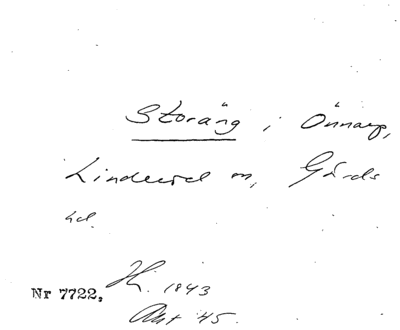 Storäng i Önnarp,
Linderöd sn, Gärds
hd.
Nr 7722. H. 1843
Akt 45.